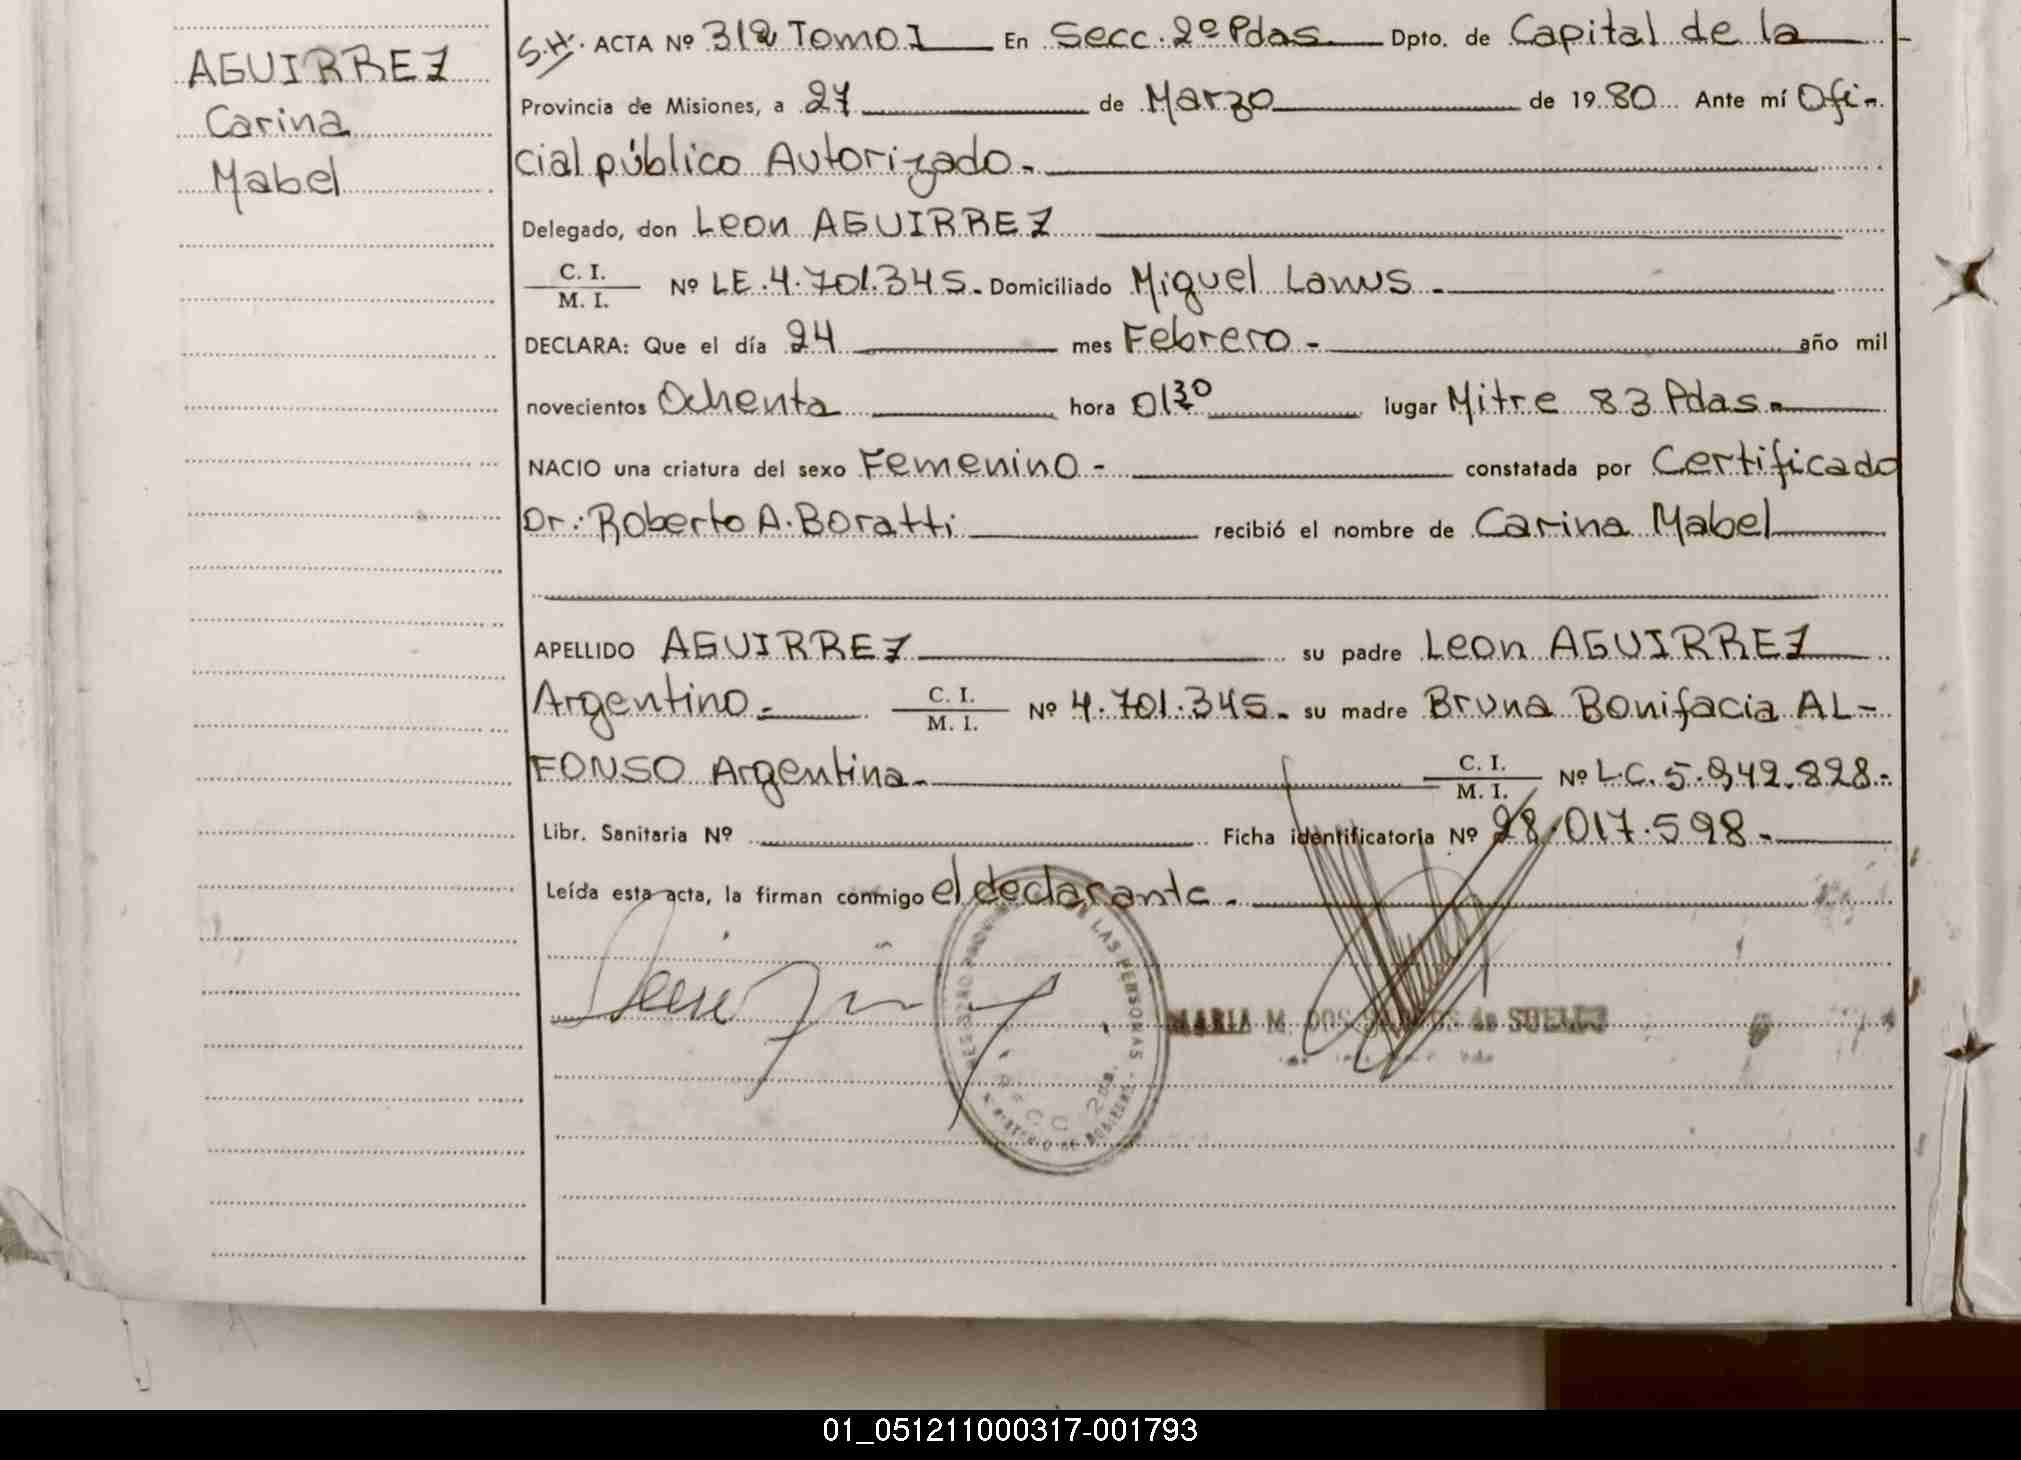 AGUIRREZ
Carina
Mabel
S.H. ACTA Nº 312 Tomo I En Secc. 2º Pdas. Dpto. de Capital de la
Provincia de Misiones, a 27 de Marzo de 1980 Ante mí Ofi-
cial público Autorizado.-
Delegado, don Leon AGUIRREZ
C. I.
M. I. Nº LE.4.701.345.- Domiciliado Miguel Lanus.-
DECLARA: Que el día 24 mes Febrero.- año mil
novecientos Ochenta hora 01 30 lugar Mitre 83 Pdas.-
NACIO una criatura del sexo Femenino.- constatada por Certificado
Dr.: Roberto A. Boratti recibió el nombre de Carina Mabel
APELLIDO AGUIRREZ su padre Leon AGUIRREZ
Argentino.- C. I.
M. I. Nº 4.701.345.- su madre Bruna Bonifacia AL-
FONSO Argentina.- C. I.
M. I. Nº L.C. 5.942.828.-
Libr. Sanitaria Nº Ficha identificatoria Nº 28.017.598.-
Leída esta acta, la firman conmigo el declarante.-
LAS PERSONAS
MARIA M. DOS SANTOS de
01_051211000317-001793